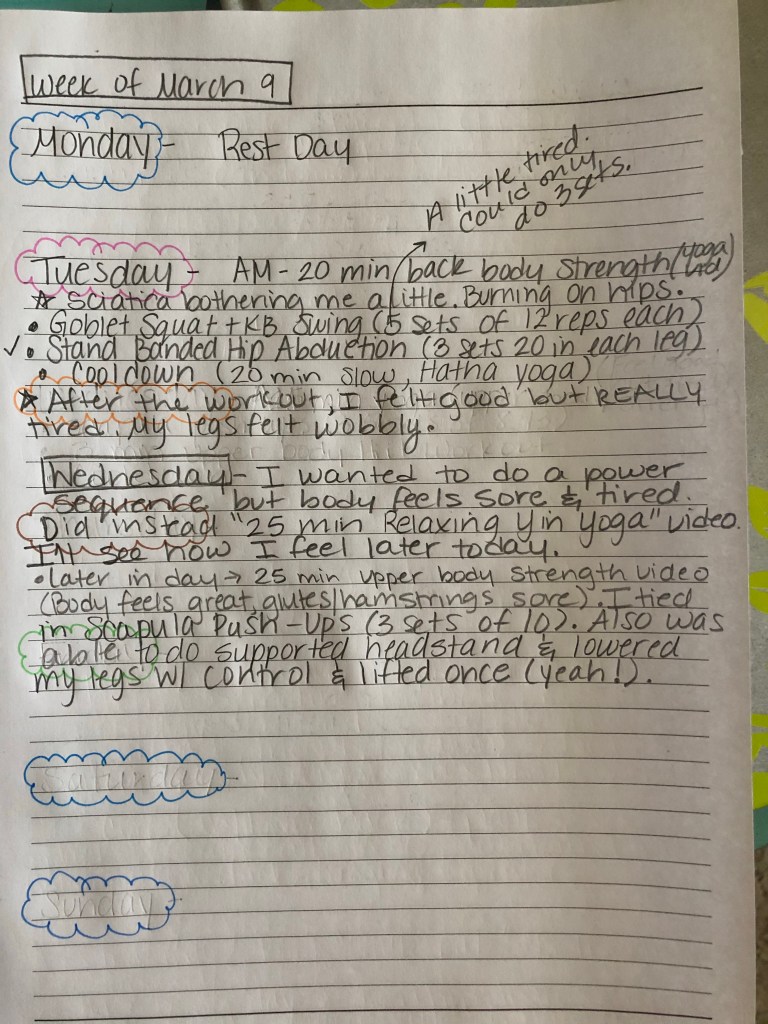 Week of March 9
Monday - Rest Day
A little tired.
Could only
do 3 sets.
Tuesday - AM - 20 min back body strength (Yoga
☆ Sciatica bothering me a little. Burning on hips.
• Goblet Squat + KB Swing (5 sets of 12 reps each)
✓ • Stand Banded Hip Abduction (3 sets 20 in each leg)
• Cooldown (20 min slow, Hatha yoga)
☆ After the workout, I felt good but REALLY
tired. My legs felt wobbly.
Wednesday - I wanted to do a power
sequence, but body feels sore & tired.
Did instead "25 min Relaxing Yin Yoga" video.
I'll see how I feel later today.
• later in day → 25 min upper body strength video
(Body feels great, glutes/hamstrings sore). I tied
in Scapula Push-Ups (3 sets of 10). Also was
able to do supported headstand & lowered
my legs w/ control & lifted once (yeah!).
Saturday -
Sunday